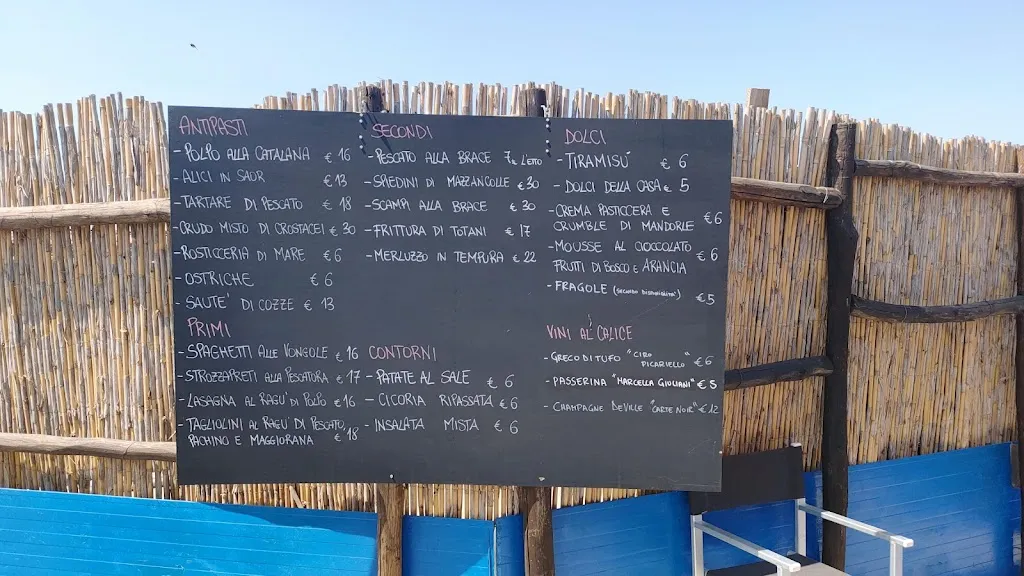 ANTIPASTI
- POLPO ALLA CATALANA € 16
- ALICI IN SAOR € 13
- TARTARE DI PESCATO € 18
- CRUDO MISTO DI CROSTACEI € 30
- ROSTICCERIA DI MARE € 6
- OSTRICHE € 6
- SAUTE' DI COZZE € 13
PRIMI
- SPAGHETTI ALLE VONGOLE € 16
- STROZZAPRETI ALLA PESCATORA € 17
- LASAGNA AL RAGU' DI POLPO € 16
- TAGLIOLINI AL RAGU' DI PESCATO,
PACHINO E MAGGIORANA € 18
SECONDI
- PESCATO ALLA BRACE 7€ L'ETTO
- SPIEDINI DI MAZZANCOLLE € 30
- SCAMPI ALLA BRACE € 30
- FRITTURA DI TOTANI € 17
- MERLUZZO IN TEMPURA € 22
CONTORNI
- PATATE AL SALE € 6
- CICORIA RIPASSATA € 6
- INSALATA MISTA € 6
DOLCI
- TIRAMISÚ € 6
- DOLCI DELLA CASA € 5
- CREMA PASTICCERA E
CRUMBLE DI MANDORLE € 6
- MOUSSE AL CIOCCOLATO
FRUTTI DI BOSCO E ARANCIA € 6
- FRAGOLE (SECONDO DISPONIBILITA') € 5
VINI AL CALICE
- GRECO DI TUFO "CIRO
PICARIELLO" € 6
- PASSERINA "MARCELLA GIULIANI" € 5
- CHAMPAGNE DEVILLE "CARTE NOIR" € 12